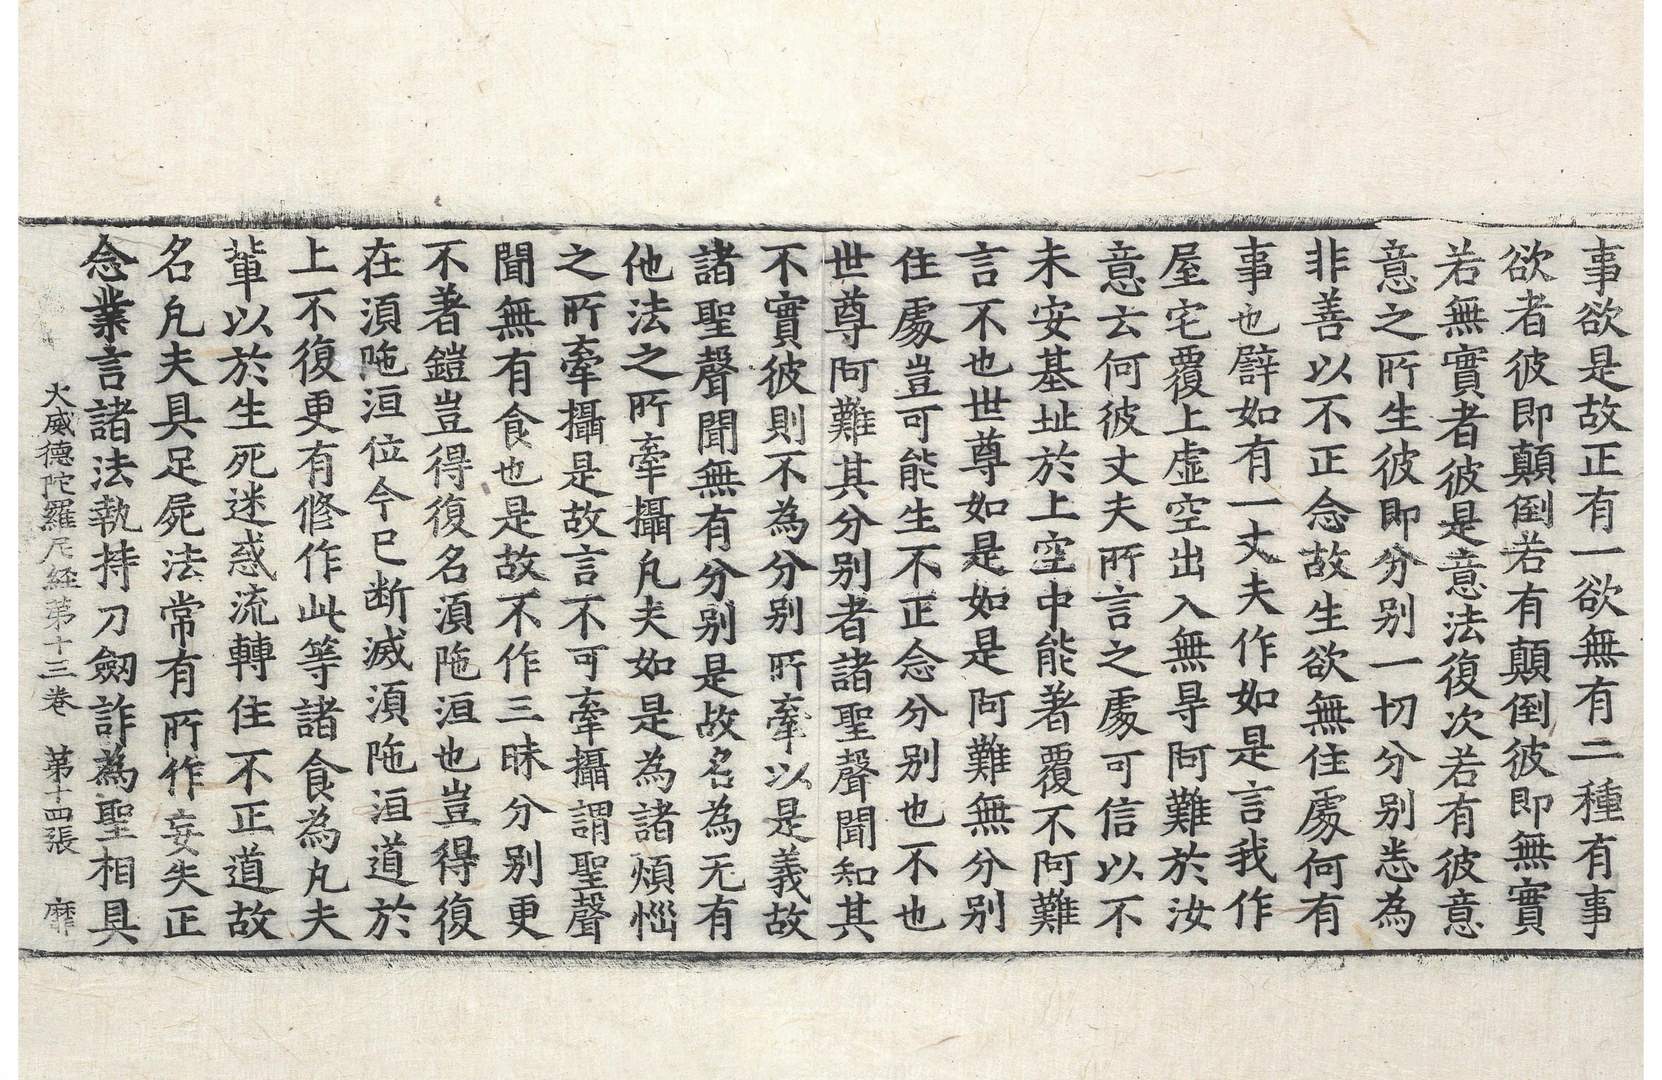 事欲是故正有一欲無有二種有事
欲者彼即顛倒若有顛倒彼即無實
若無實者彼是意法復次若有彼意
意之所生彼即分别一切分别悉為
非善以不正念故生欲無住處何有
事也譬如有一丈夫作如是言我作
屋宅覆上虛空出入無㝵阿難於汝
意云何彼丈夫所言之處可信以不
未安基址於上空中能著覆不阿難
言不也世尊如是如是阿難無分别
住處豈可能生不正念分别也不也
世尊阿難其分别者諸聖聲聞知其
不實彼則不為分别所牽以是義故
諸聖聲聞無有分别是故名為无有
他法之所牽攝凡夫如是為諸煩惱
之所牽攝是故言不可牽攝謂聖聲
聞無有食也是故不作三昧分别更
不著鎧豈得復名湏陁洹也豈得復
在湏陁洹位今已断滅湏陁洹道於
上不復更有修作此等諸食為凡夫
輩以於生死迷惑流轉住不正道故
名凡夫具足屍法常有所作妄失正
念業言諸法執持刀劒詐為聖相具
大威德陀羅尼経苐十三卷　苐十四張　靡